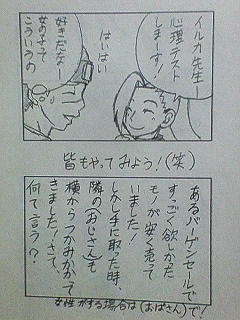 イルカ先生ー
心理テスト
しまーす!
はいはい
好きだなー
女の子って
こういうの
皆もやってみよう!(笑)
あるバーゲンセールで
すっごく欲しかった
モノが安く売って
いました!
しかし手に取った時、
隣の(おじさん)も
横からつかみかかって
きました!さて、
何て言う?
女性がする場合は(おばさん)で!